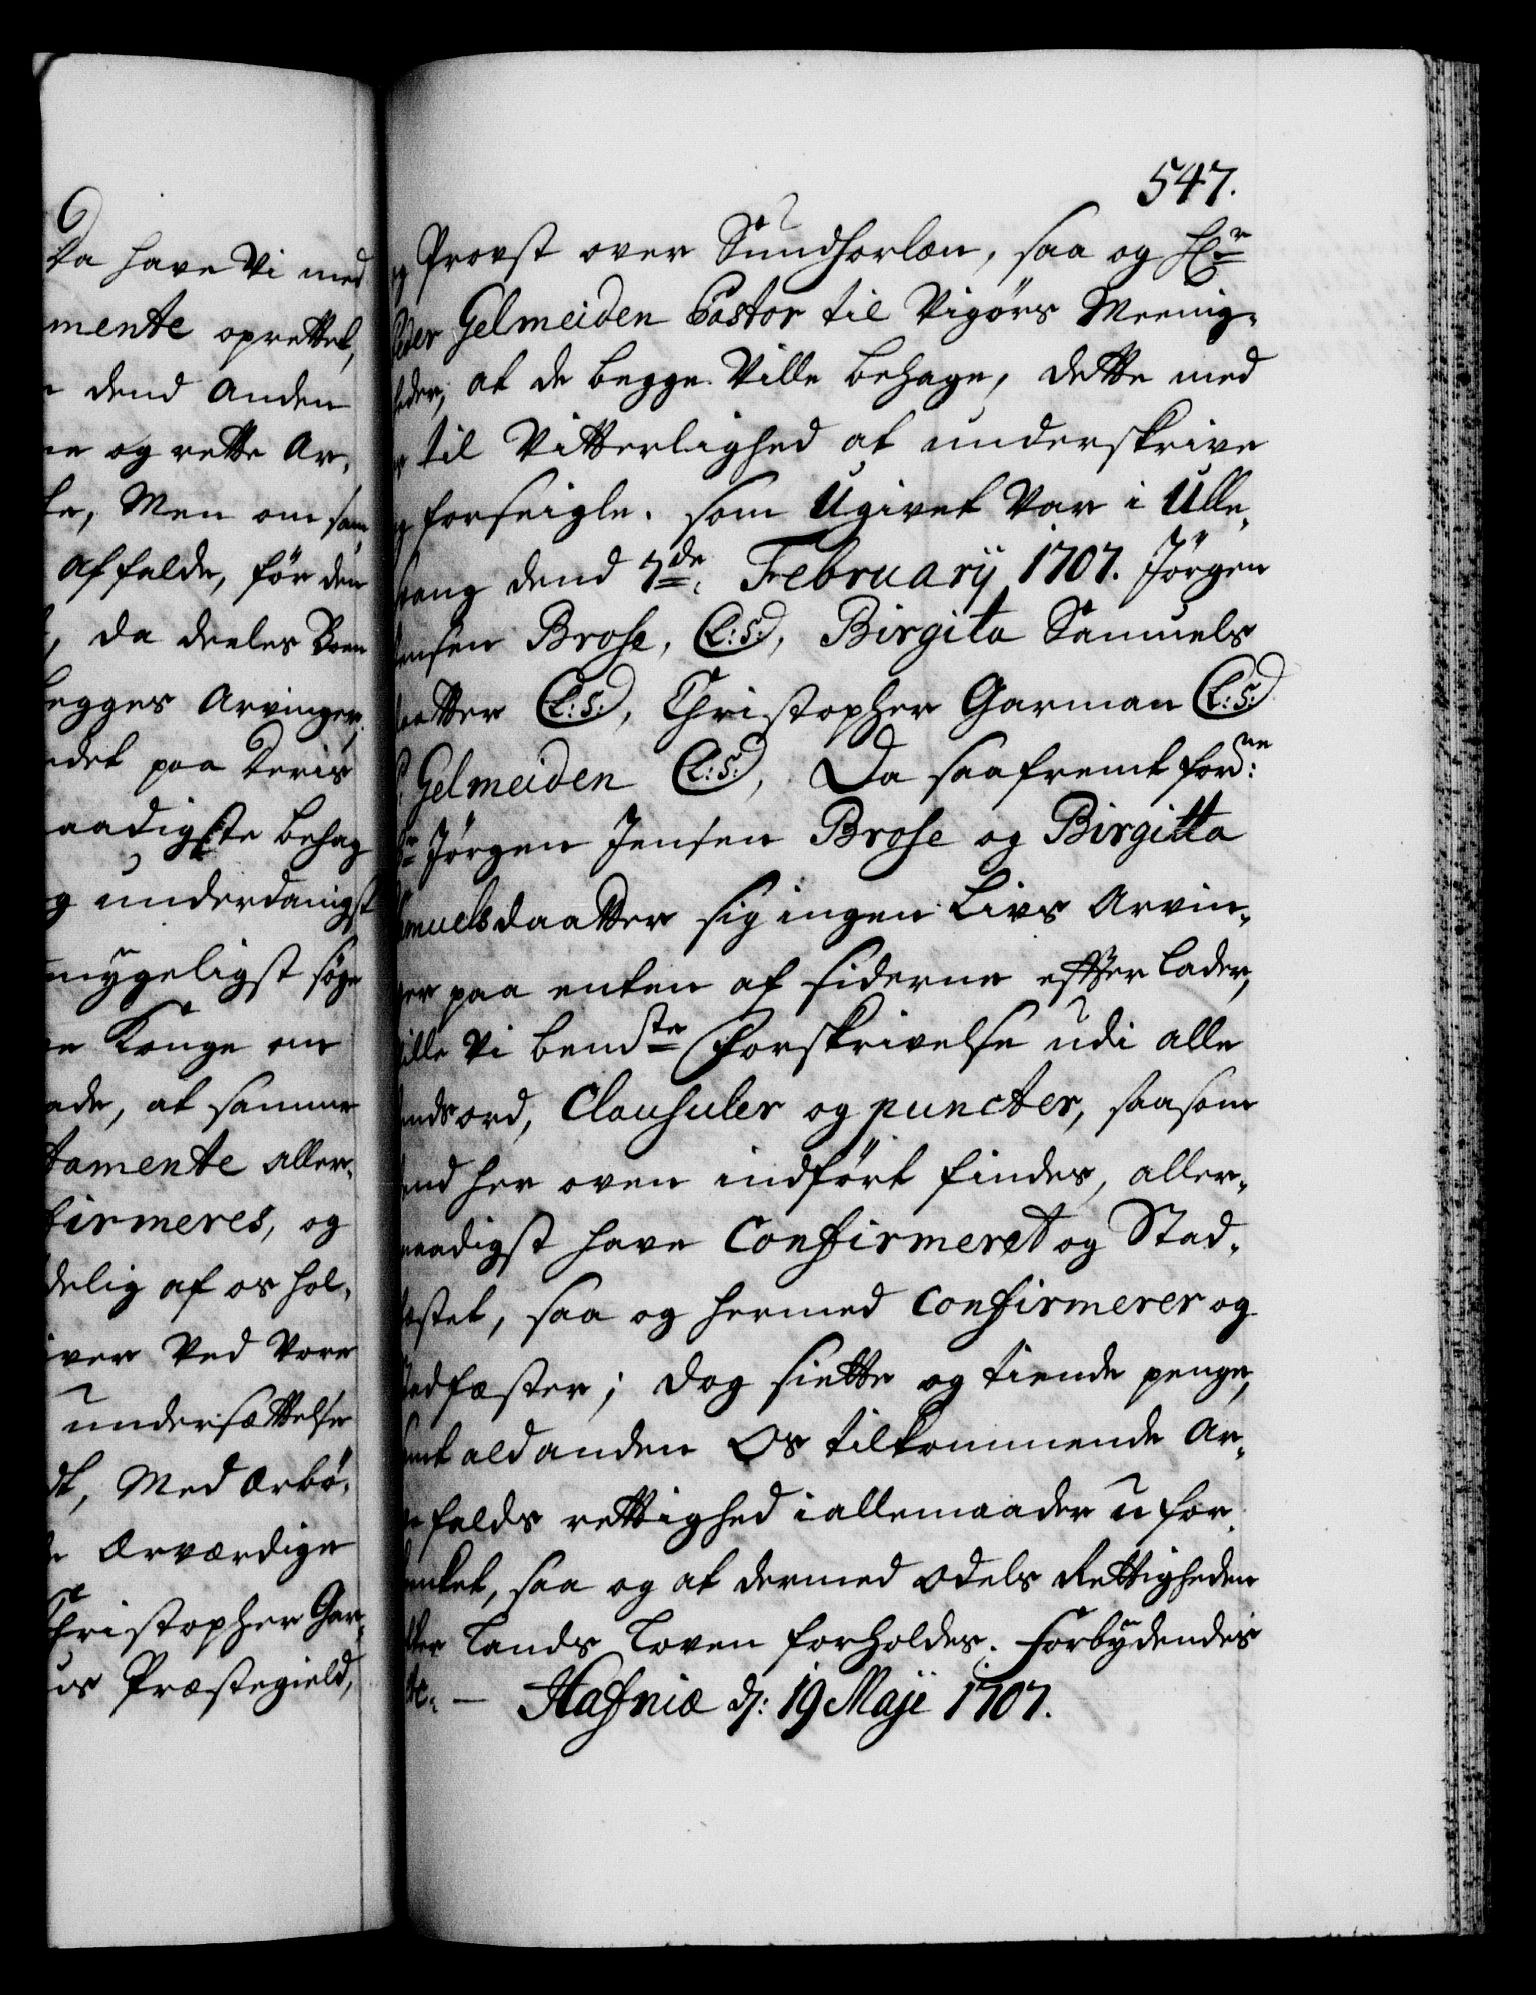 Da have Vi med
mente oprettet,
dend Anden
og rette Ar-
te, Men om sam
affalde, før den
, da deeles Boen
egges Arvinger,
det paa Deris
aadigste behag
g underdanigst
mygeligst søge
Konge om
ade, at samme
tamente Aller-
firmeres, og
delig af os hol-
iver Ved Vore
undersættelse
dt, Med Ærbø-
Ærværdige
Christopher Gar-
os Præstegield,
547.
Provst over Sundhorlen, saa og Hr
Peder Gelmeiden Pastor til Vigørs Meenig-
heder, at de begge Ville behage, dette med
til Vitterlighed at underskrive
og forseigle. som Ugivet Var i Ulle-
svang dend 7de February 1707. Jørgen
Jensen Brose, (L:S:), Birgita Samuels
daatter (L:S:), Christopher Garman (L:S:)
P: Gelmeiden (L:S:), Da saafremt forne:
Hr Jørgen Jensen Brose og Birgitta
Samuelsdaatter sig ingen Livs Arvin-
ger paa enten af siderne efterlader,
Ville Vi bemdte Forskrivelse udi alle
Sinds ord, Clausuler og puncter, saasom
dend her oven indført findes, aller-
naadigst have Confirmeret og Stad-
fæstet, saa og hermed Confirmerer og
Stadfæster; dog siette og tiende penge,
samt ald anden Os tilkommende Ar-
ve falds rettighed i allemaader ufor-
krenket, saa og at dermed Odels Rettigheden
efter Lands Loven forholdes. Forbydendes
etc. — Hafniæ d: 19 Maji 1707.